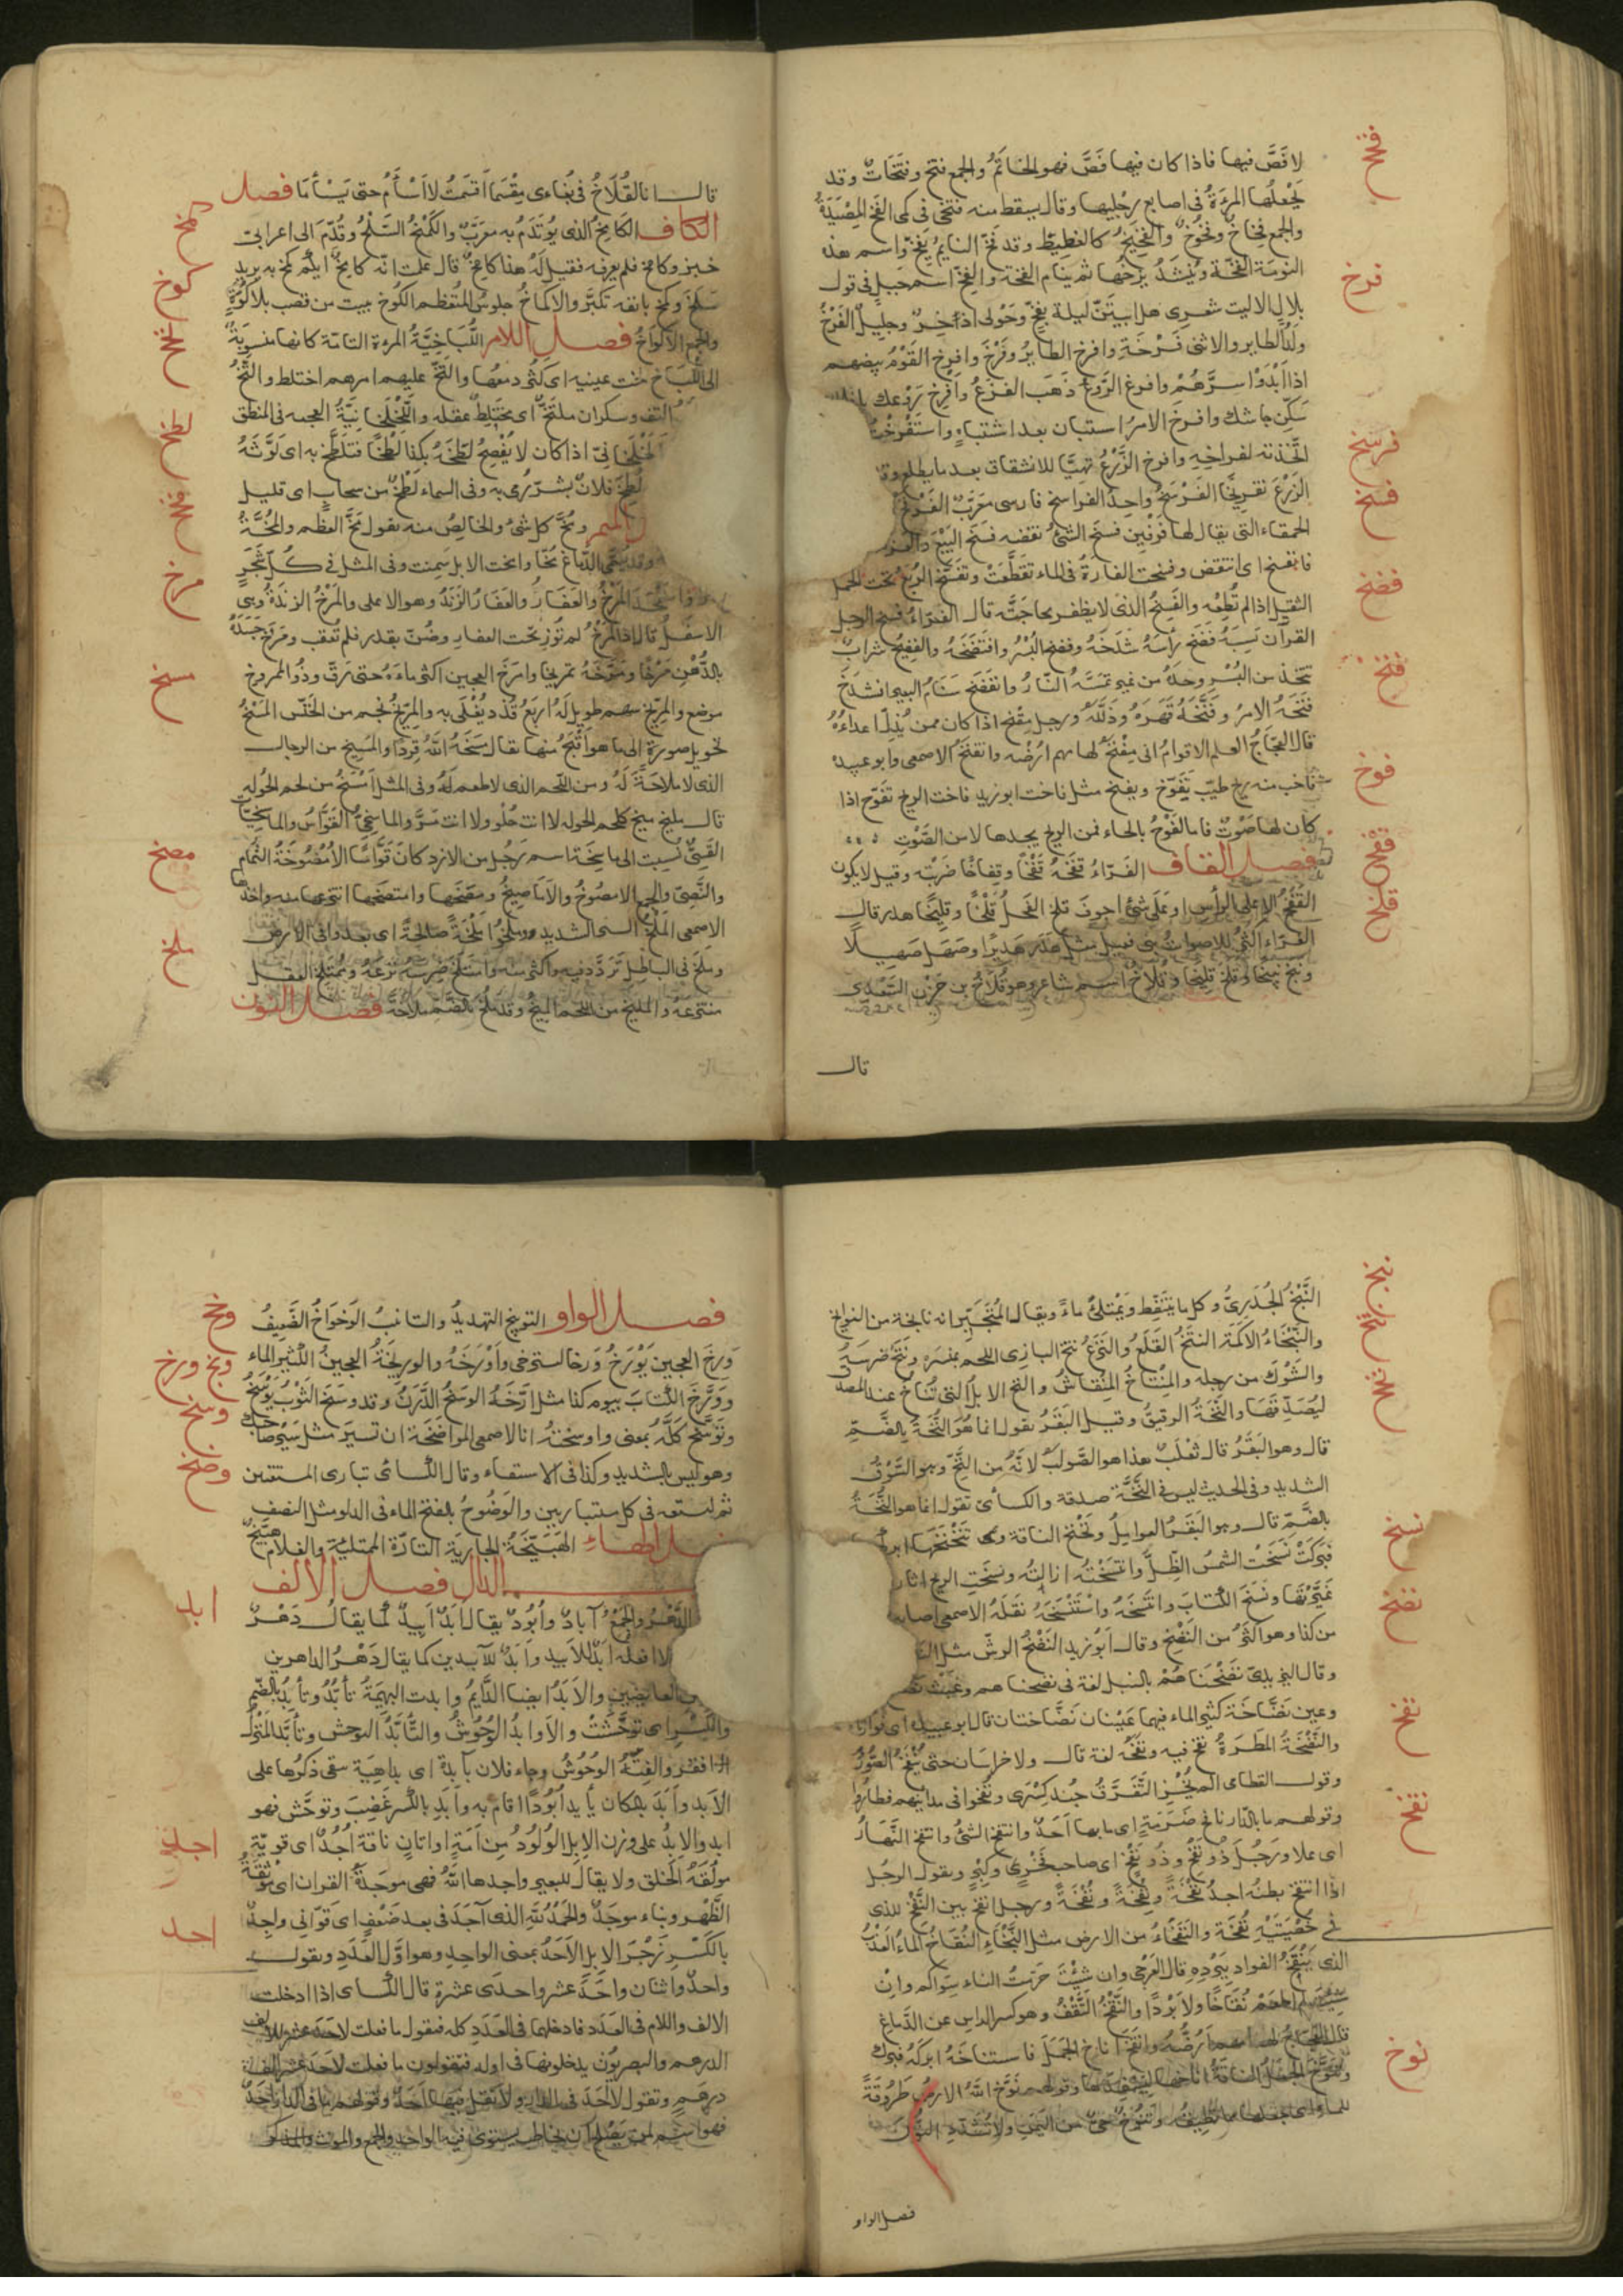 لا فَصَّ فيها فاذا كان فيها فَصَّ فهو الخاتَمُ والجمع فتخ وفتَخَاتٌ وقد
فتخ
يَجْعلُها المرءَةُ فى اصابع رجْليها وقال يسقط منه فتخى فى كمى الفخ المِصْيَدَةُ
والجمع فِخاخٌ وفُخُوخٌ والفَخِيخُ كالغطِيطِ وقد فَخَّ النايمُ يَفِخّ واسم هذه
النومَة الفَخَّة ويُنْشَدُ يزخها ثم ينام الفخة والفَخّ اسم جبل فى قول
بلال الاليت شعرى هل ابيتَنّ ليلة بفخّ وحَوْلى اذخِرٌ وجليلٌ الفَرْخُ
فرخ
ولدُ الطاير والانثى فَرْخَة وافرخ الطايرُ وفَرَّخَ وافرخ القَوْمُ بيضهم
اذا ابْدَوْا سرَّهُمْ وافرخ الرَّوعُ ذهَبَ الفزعُ وافرخ رَوْعك
سَكّن جاشك وافرخَ الامرُ استبان بعد اشتباه واستَفْرَختُ
اتَّخذته لفراخِه وافرخ الزَّرْعُ تهيَّا للانشقاق بعد ما يطلع وقد
فرسخ
الزَّرْعُ تفريخًا الفَرْسَخُ واحد الفراسخ فارسى معَرَّبٌ الفَرْفَخُ
فسخ
الحمقاء التى يقال لها فَرْفِين فسخ الشئَ نقضه فسَخَ البَيْعَ والعزم
فانفسخ اى انتقض وفسخت الفارةُ فى الماء تقَطَّعَتْ وتفَسَّخَ الرُبَعُ تحت الحمل
فضخ
الثقيل اذا لم تُطِقْه والفَسِيخُ الذى لا يظفر بحاجَتِه قال الفرّاءُ فسخ الرجل
القرآن نَسِيَهُ فضَخَ رأسَهُ شَدَخَهُ وفضخ البُسْرَ وافتَضَخَهُ والفَضِيخُ شرابٌ
يتخذ من البُسْرِ وحدَهُ من غير تمسّهُ النّارُ وانفَضَخ سَنَامُ البعير انشدَخ
فنخ
فَنَخَهُ الامرُ وفَنَّخَهُ قهرَهُ وذَلَّلَهُ ورجل مِفْنخ اذا كان ممن يُذِلّ اعداءَهُ
قال العجّاج العلم الاقوام انى مِفْنَخٌ لهامهم ارُضّه وانقَخُ الاصمعى وابو عبيد
فوخ
فاخت منه ريح طيّب تفوخ ويفيخ مثل فاخت ابو زيد فاخت الريح تفوخ اذا
كان لها صَوْتٌ فاما الفَوْحُ بالحاء فمن الريح يجدها لا من الصَّوْتِ
قفخ
فصل القاف الفرّاءُ قفَخَهُ قَفْخًا وقِفاخًا ضرَبَه وقيل لا يكون
قلخ
القَفْخُ الا على الراس او على شئ اجوفَ قلخ الفحلُ قَلْخًا وقليخًا هدر قال
الفرّاء اكثر الاصوات بنى فعيل مثل هَدَر هَديرًا وصَهَل صَهيلًا
ونبح نبيحًا وقلخ قليخًا وقُلَاخٌ اسم شاعر وهو قُلَاخُ بن حَزْن السَّعْدِى
قال
قال انا القُلَاخُ فى بُغاءى مِقْسَما اقسَمْتُ لا اَسْأَمُ حتى يَسْأَمَا فصل
كمخ
الكاف الكامخُ الذى يُؤتَدَمُ به معَرَّبٌ والكَمْخُ السَّلْحُ وقُدّمَ الى اعرابى
خبز وكامخ فلم يعرفه فقيل لَهُ هذا كامخٌ قال علمت انّه كامخٌ ايكُم كمخ به يريد
كوخ
سَلَحَ وكمخ بانفه تكبَّر والاكماخُ جلوسُ المُتَعظّم الكُوخ بيت من قصب بلا كُوَّةٍ
والجمع الاكواخُ فصل اللام اللُّبَاخِيَّةُ المرءة التامّة كانها منسوبَةٌ
لخخ
الى اللُّبَاخ لخت عينيه اى كثُر دمعُها والتخّ عليهم امرهم اختلط والتخّ
التف وسكران ملتَخٌّ اى مختَلِطٌ عقله واللَّخْلَخَانِيَّةُ العجمه فى المنطق
لطخ
لَخْلَخَانىّ اذا كان لا يُفْصِحُ لطَخَهُ بكذا لَطْخًا فتلَطَّخ به اى لَوَّثَهُ
لُطِخَ فلانٌ بشرّ رُمى به وفى السماء لَطْخٌ من سحاب اى قليل
مخخ
الميم ومُخُّ كل شئ والخالِصُ منه يقول مُخَّ العَظْم والمُخَّةُ
وقد يسمّى الدّماغ مُخّا وامخت الابل سَمِنت وفى المثل فى كُلّ شَجَرٍ
مرخ
نار واستَمْجَدَ المَرْخُ والعَفَارُ والعَفَارُ الزَنْدُ وهو الاعلى والمَرْخُ الزندَةُ وهى
الاسفلُ قال اذا المرْخُ لم تُورِ تحت العفار وضُنّ بقدر فلم تُعقب ومَرَخَ جَسَدَهُ
بالدُّهْنِ مَرْخًا ومَرَّخَهُ تمريخًا وامرَخَ العجينَ اكثر ماءَهُ حتى رَقّ وذُو المروخ
مسخ
موضع والمِرِّيخُ سهم طويل لَهُ اربَعُ قُذَذ يُغْلَى به والمِرّيخُ نجم من الخَنّس المَسْخُ
تحويل صورة الى ما هو اقبَحُ منها يقال مسَخَهُ اللّهُ قِردًا والمَسِيخ من الرجال
الذى لا ملاحَة لَهُ ومن اللّحم الذى لا طعم لَهُ وفى المثل اَمْسَخُ من لحم الحُوارِ
قال مليخ مسيخ كلحم الحوار لا انت حُلْو ولا انت مَرّ والماسِخِىُّ القَوَّاسُ والماسِخِيَّا
مصخ
القسِىُّ نُسِبت الى ماسِخَة اسم رَجُل من الازد كان قَوَّاسًا الاُمْصُوخَةُ الثّمام
والنَّصِىّ والجمع الامصُوخُ والاَمَاصِيخُ ومصَخَها وامتصَخَها انتزعها منه واخذها
ملخ
الاصمعى المَلْخُ السير الشديد وملخُوا مَلْخَةً صالِحَةً اى بعدوا فى الارض
وملَخ فى الباطِل ترَدَّد فيه واكثر منه وامتَلَخ ضِرسَهُ نزَعَهُ ومُمتَلَخ العقل
منتزعه والمليخ من اللحم المسيخ وقد مَلُخ بالضّم ملاخَةً فصل النون
النَّبْخُ الجُدَرِىُّ وكل ما يتَنَفّط ويَمْتلئُ ماءً ويقال المُتَجَبّر انه نابخة من النوابخ
نبخ
والنَّبْخَاءُ الاكَمَة النَتْخُ القَلْعُ والنَزعُ نتخ البازى اللحم بمنسَرِه ونتَخَ ضرسَهُ
والشَّوْكَ من رجله والمِنْتاخُ المِنْقَاشُ والنخ الابل التى تُناخُ عند المصدّق
نخخ
ليُصَدّقَها والنَخَّةُ الرقيقُ وقيل البَقَرُ يقول انما هُوَ النُّخَّةُ بالضَّمّ
قال وهو البَقَرُ قال ثعْلَبٌ هذا هو الصَّوابُ لانَّهُ من النَّخّ وهو السَّوْقُ
الشديد وفى الحديث ليس فى النَّخَّة صدقة والكسائ تقول انما هو النُّخَّةُ
بالضَّمّ قال وهو البَقَرُ العواملُ ونَخْنَخَ الناقة وقد تنَخْنَخَها ابرك
نسخ
فبركَتْ نسَخَتْ الشمسُ الظِلّ وانتسَخَتْهُ ازالتُه ونسَخَتِ الريح آثار
غيَّرَتْها ونسَخَ الكتابَ وانتَسَخَهُ واسْتَنْسَخَهُ نقَلَهُ الاصمعى اصابه
نضخ
من كذا وهو اكثَر من النَضْح وقال ابُو زيد النَضْخُ الرشّ مثل النّ
وقال اليزيدىّ نضَخْنَاهُمْ بالنبل لغة فى نضحناهم وغَيْثٌ نضّ
وعين نضَّاخَة كثير الماء فيهما عَيْنان نَضَّاختان قال ابو عبيد اى فوارتان
نفخ
والنَّضْخَةُ المَطَرَةُ نفخ فيه ونفَخَهُ لغة قال ولا خراسان حتى يُنْفَخَ الصُّوَرُ
وقول القطامى الم يُخْزِ التَّفَرُّقُ جُندَ كِسْرَى ونُفِخُوا فى مداينهم فطارُوا
نقخ
وقولهم ما بالدّار نافخ ضَرَمَةٍ اى ما بها اَحَدٌ وانتفخ الشئُ وانتفخ النَّهَارُ
اى علا ورَجُلٌ ذُو نَفْخٍ وذُو نَفْجٍ اى صاحب فخْرٍ وكِبْر ويقول الرجُل
اذا انتفخ بطنُه اجدُ نُفْخَةً ونِفْخَةً ونَفْخَةً ورجل انفخ بين النَّفَخ للذى
فى خُصْيَتَيْهِ نُفْخَة والنَفْخَاءُ من الارض مثل النَّبْخَاءِ النُقَاخُ الماءُ العَذْبُ
الذى يَنْقَخُ الفواد ببَرْدِه قال العَرْجى وان شئْتَ حَرّمتُ النساء سِواكم وان
شئت لم اطعَمْ نُقَاخًا ولا بَرْدًا والنَّقْخُ النَّقْفُ وهو كسر الراس عن الدّماغ
نوخ
قال العجاج لهامهم اَرُضُّهُ وانقَخُ اناخ الجمَلَ فاستناخَهُ ابركَهُ فبرك
وتنَوَّخَ الجمَلُ الناقةُ اناخها ليسفدها وقولهم نَوَّخَ اللهُ الارضَ طَرُوقَةً
للماء اى جعلها مما تُطِيقُه وتَنُوخُ حَىٌّ من اليَمَن ولا تُشَدّدِ النّون
فصل الواو
فصل الواو التوبيخ التهديدُ والتانيبُ الوَخْوَاخُ الضَّعِيفُ
وبخ
وَرِخَ العجين يَوْرَخُ وَرَخا استرخى واَوْرَخَهُ والوريخَةُ العجينُ الكثير الماء
وخخ ورخ
ووَرَّخَ الكتابَ بيوم كذا مثل ارَّخَهُ الوسَخُ الدَّرَنُ وقد وسَخَ الثوْبُ يَوْسَخُ
وسخ
وتوَسَّخ كُلّهُ بمعنى واوسَخْتُهُ انا الاصمعى المواضخَة ان تسيرَ مثل سَيْر صاحبك
وضخ
وهو ليس بالشديد وكذا فى الاستقاء وقال الكسائ تبارى المستقين
ثم استعير فى كل متباريين والوَضُوخُ بالفتح الماء فى الدلو مثل النصف
فصل الهاء الهَبَيَّخَةُ الجارية التارّة الممتلئة والغلام هَبَيَّخٌ
الدال فصل الالف
ابد
الدَّهْرُ والجمْعُ آبادٌ واُبُودٌ يقال ابَدٌ اَبِيدٌ كما يقال دَهْرٌ
لا افعله ابَدَ الاَبيد واَبَدَ الآبدين كما يقال دَهْرَ الداهرين
العايضين والاَبَدُ ايضا الدَّايمُ وابدت البهيمَةُ تأبُدُ وتأبِدُ بالضّم
والكسر اى توحَّشتْ والاوابدُ الوُحُوشُ والتَّأبُّدُ التوحش وتأبَّد المنزل
اذا اقفر والفِتْهُ الوُحُوشُ وجاء فلان بآبدةٍ اى بداهِيَة يبقى ذكرُها على
الاَبد واَبَدَ بالمكان يأبد اُبُودًا اقام به واَبِدَ بالكسر غَضِبَ وتوحَّش فهو
اجد
ابد والابدُ على وزن الابل الوَلُودُ مِن اَمَةٍ او اتَانٍ ناقة اُجُدٌ اى قويّة
موثّقَهُ الخلق ولا يقال للبعير واجدها اللهُ فهى موجَدَةُ القرا ان اى مُوثَقَةُ
الظَّهر وبناء موجَدٌ والحَمْدُ للّهِ الذى آجَدَنى بعد ضَعْفٍ اى قَوّانى واجِدْ
احد
بالكَسْر زَجْرُ الابل الاَحَدُ بمعنى الواحِد وهو اوَّل العَدَدِ ويقول
واحدٌ واثنان واحَدَ عشر واحدَى عشرة قال الكسائى اذا ادخلت
الالف واللام فى العدَد فادخلهما فى العدَدِ كله فيقول ما فعلت الاحَدَ عشر الالف
الدرهم والبصريّون يدخلونها فى اوله فيقولون ما فعلت الاحَدَ عشر الف
درهم وتقول لا اَحَدَ فى الدار ولا تقل فيها اَحَدٌ وقولهم ما فى الدار اَحَدٌ
فهو اسم لمن يصلح ان يخاطب يستوى فيه الواحد والجمع والمونث والمذكر